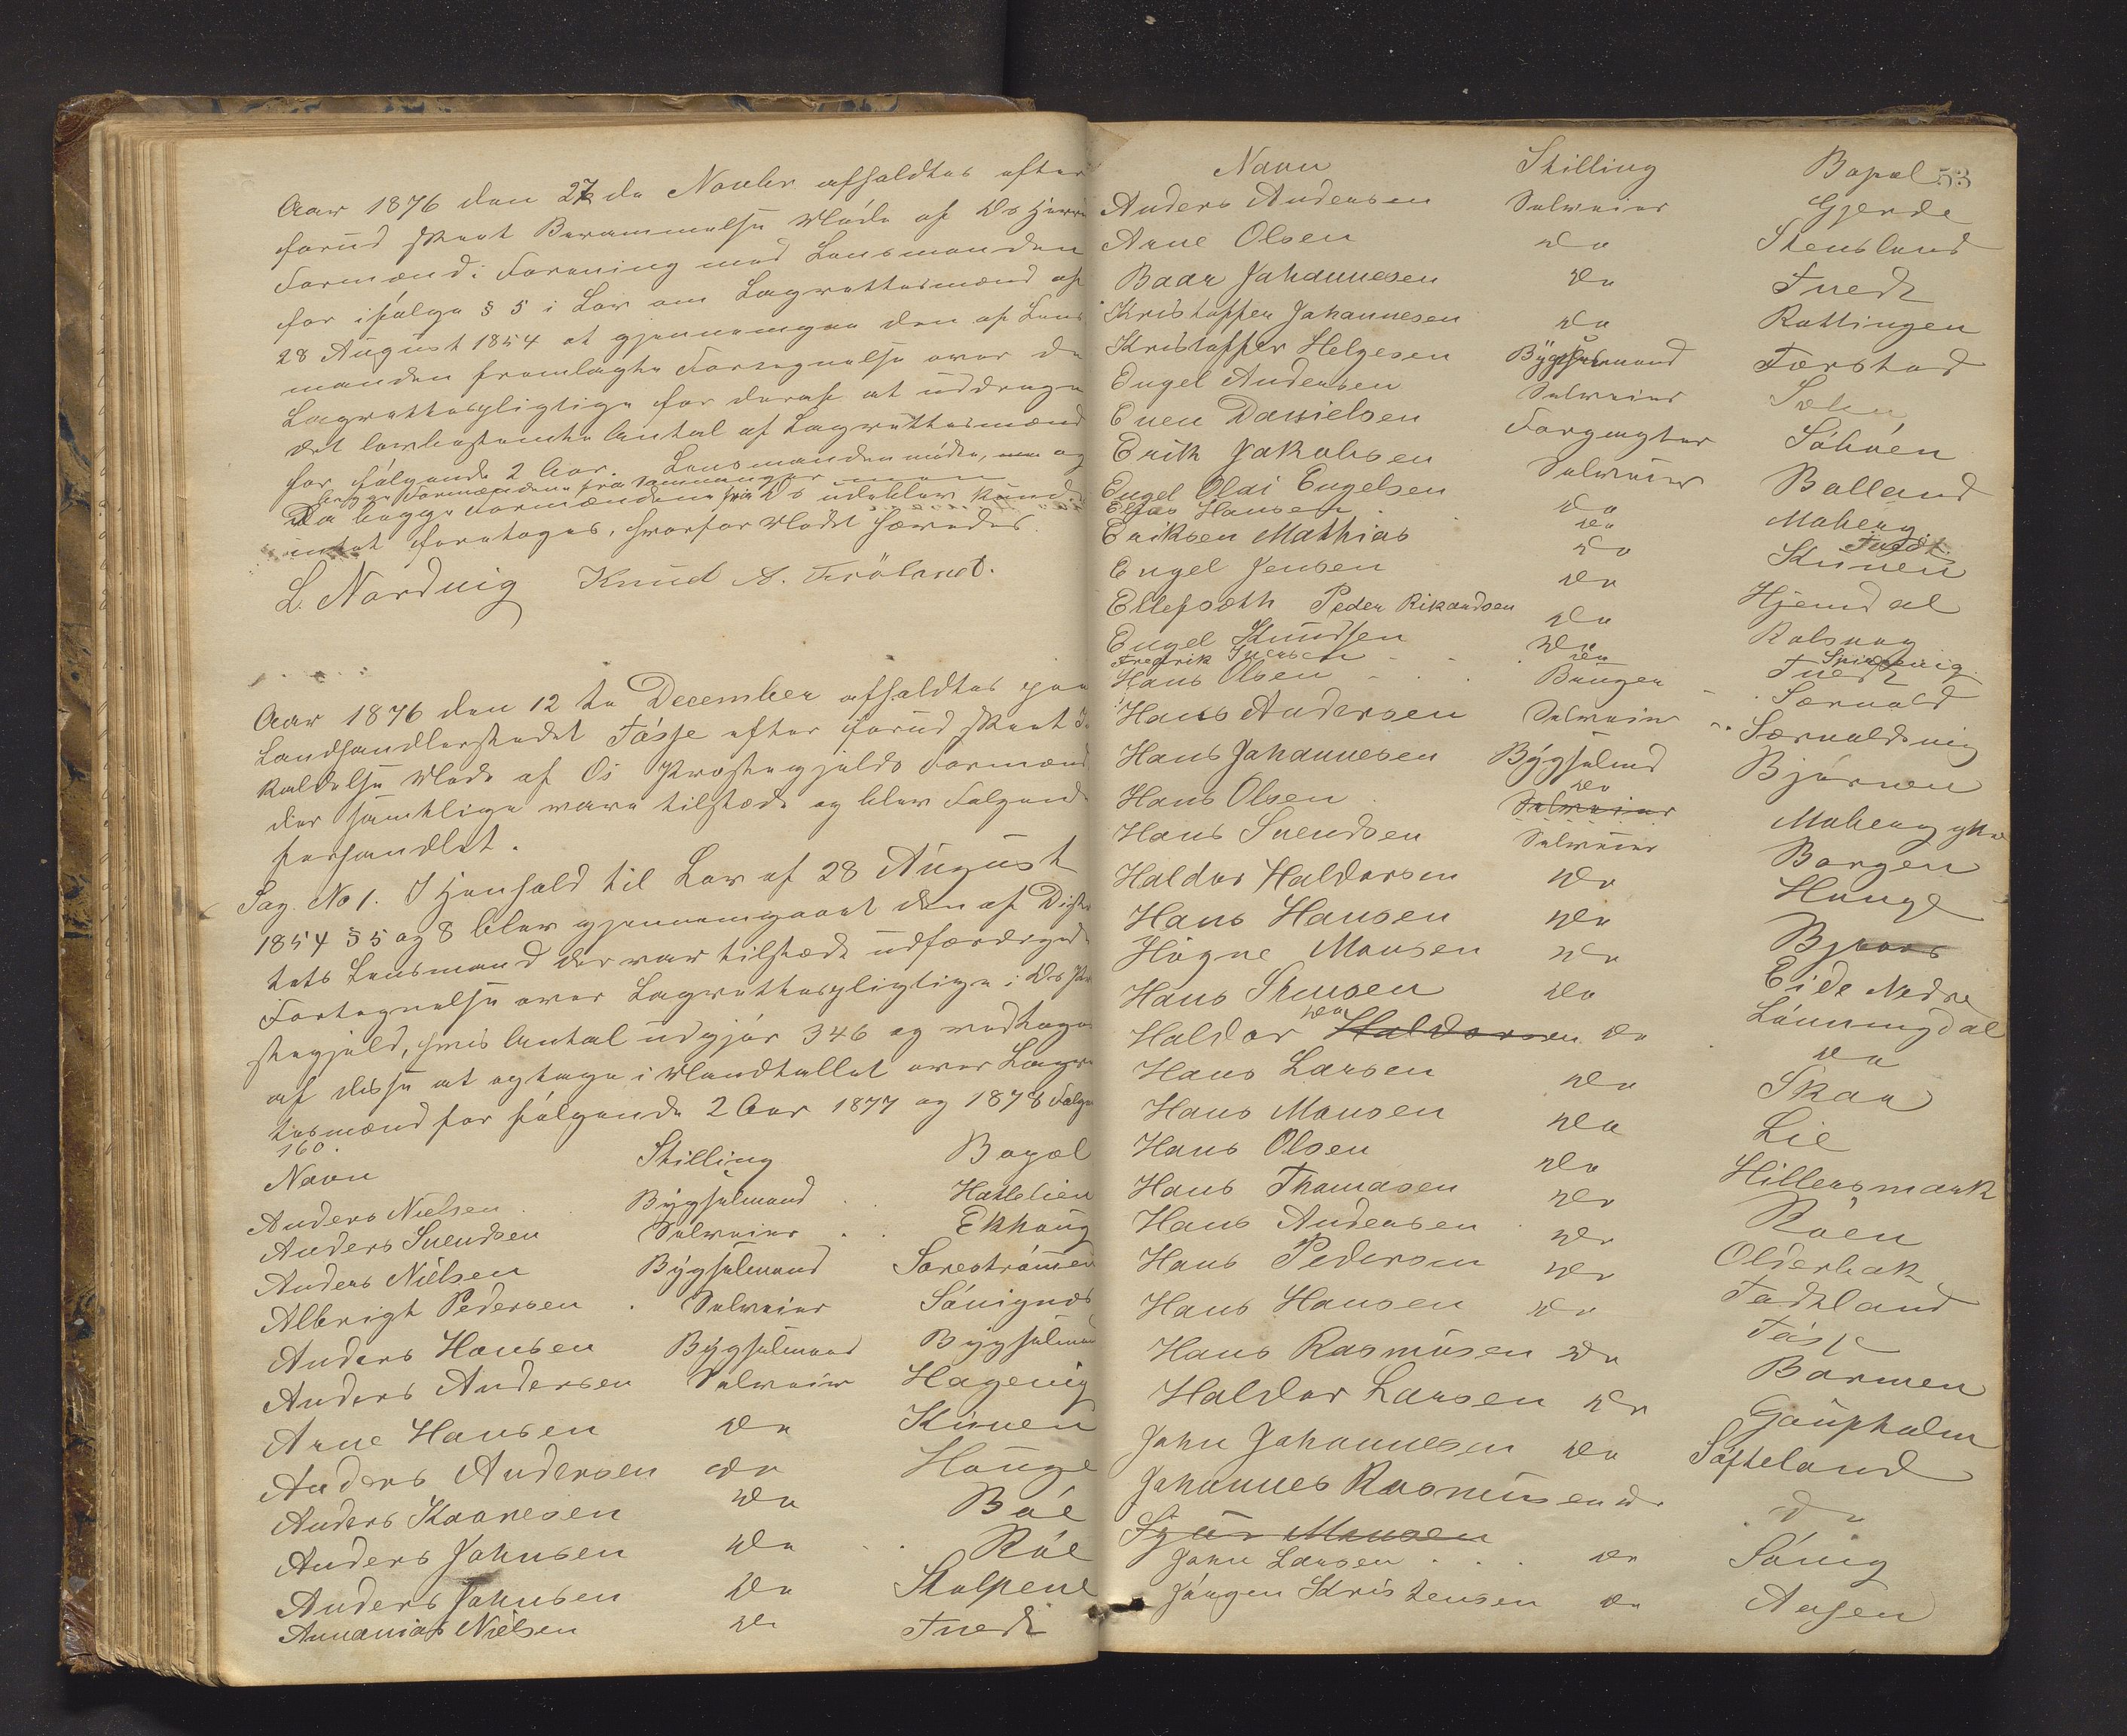 Aar 1876 den 27de Novbr afholdtes efter
forud skeet Berammelse Møde af Os Herreds
Formænd i Forening med Lensmanden
for ifølge § 5 i Lov om Lagrettesmænd af
28 August 1854 at gjennemgaa den af Lens
manden fremlagte Fortegnelse over de
Lagrettespligtige for deraf at uddrage
det lovbestemte Antal af Lagrettesmænd
for følgende 2 Aar. Lensmanden mødte, men og
begge Formændene fra Samnanger
Da begge Formændene fra Os udeblev kunde
intet foretages, hvorfor Mødet hævedes.
L. Nordvig Knud A. Frøland.
Aar 1876 den 12te December afholdtes paa
Landhandlerstedet Tøsse efter forud skeet Ind
kaldelse Møde af Os Præstegjelds Formænd
der samtlige vare tilstæde og blev Følgende
forhandlet.
Sag No 1. I Henhold til Lov af 28 August
1854 § 5 og 8 blev gjennemgaaet den af Distri
tets Lensmand der var tilstæde udfærdigede
Fortegnelse over Lagrettespligtige i Os Præ
stegjeld, hvis Antal udgjør 346 og vedtoges
af disse at optage i Mandtallet over Lagret
tesmænd for følgende 2 Aar 1877 og 1878 Følgende
160.
Navn Stilling Bopæl
Anders Nielsen Bygselmand Hatlelien
Anders Svendsen Selveier Ekhaug
Anders Nielsen Bygselmand Sørestrømen
Albrigt Pedersen Selveier Søvignæs
Anders Hansen Bygselmand Bygselmand
Anders Andersen Selveier Hagevig
Arne Hansen do Kuven
Anders Andersen do Hauge
Anders Kaaresen do Bøe
Anders Johnsen do Røe
Anders Johnsen do Skulpene
Annanias Nielsen do Tvedt
53
Navn Stilling Bopæl
Anders Andersen Selveier Gjerde
Arne Olsen do Stensland
Baar Johannesen do Tvedt
Kristoffer Johannesen do Rottingen
Kristoffer Helgesen Bygselmand Førstad
Engel Andersen Selveier
Even Danielsen Forpagter Søhøen
Erik Jakobsen Selveier Balland
Engel Olai Engelsen do Moberg
Elias Hansen do Tvedt
Eriksen Mathias do Kuven
Engel Jensen do Hjemdal
Ellefsæth Peder Rikardsen do Rolsvog
Engel Knudsen do Tvedt
Fredrik Iversen do
Hans Olsen Bruger Særvold
Hans Andersen Selveier Særvoldsvig
Hans Johannesen Bygselmd Bjørnen
Hans Olsen do Selveier Moberg ytre
Hans Svendsen Selveier Borgen
Haldor Haldorsen do Hauge
Hans Hansen do
Høgne Monsen do Eide Nedre
Hans Stensen do Lønningdal
Haldor do Haldorsen do do
Hans Larsen do Skaa
Hans Monsen do Lie
Hans Olsen do Hillersmark
Hans Thomasen do Røen
Hans Andersen do Olderbak
Hans Pedersen do Fadtland
Hans Hansen do Tøsse
Hans Rasmusen do Bormen
Haldor Larsen do Gaupholm
John Johannesen do Søfteland
Johannes Rasmusen do do
Sjur Monsen
John Larsen do Søvig
Jørgen Kristensen do Aasen